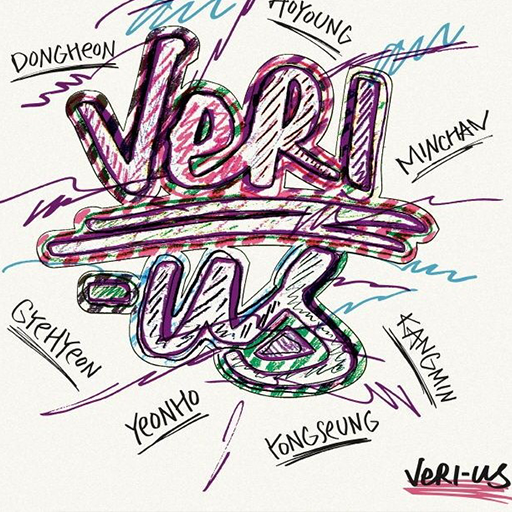 HOYOUNG
DONGHEON
VeRI
MINCHAN
-us
GYEHYEON
KANGMIN
YEONHO
YONGSEUNG
VeRI-us